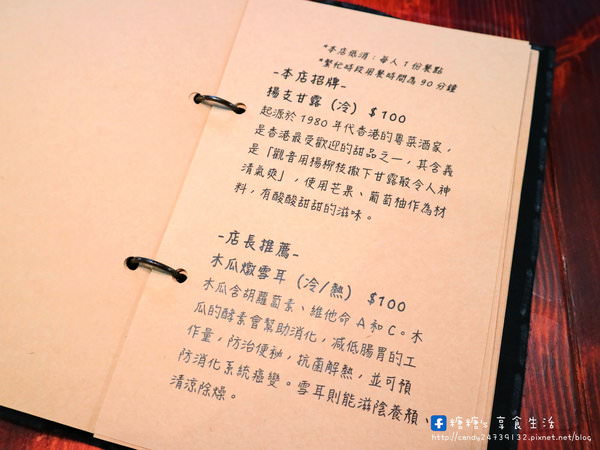 *本店低消：每人1份餐點
*繁忙時段用餐時間為90分鐘
-本店招牌-
楊支甘露（冷）$100
起源於1980年代香港的粵菜酒家，
是香港最受歡迎的甜品之一，其含義
是「觀音用楊柳枝撒下甘露般令人神
清氣爽」，使用芒果、葡萄柚作為材
料，有酸酸甜甜的滋味。
-店長推薦-
木瓜燉雪耳（冷/熱）$100
木瓜含胡蘿蔔素、維他命A和C。木
瓜的酵素會幫助消化，減低腸胃的工
作量，防治便秘，抗菌解熱，並可預
防消化系統癌變。雪耳則能滋陰養顏、
清涼除燥。
糖糖's 享食生活
http://candy24739132.pixnet.net/blog